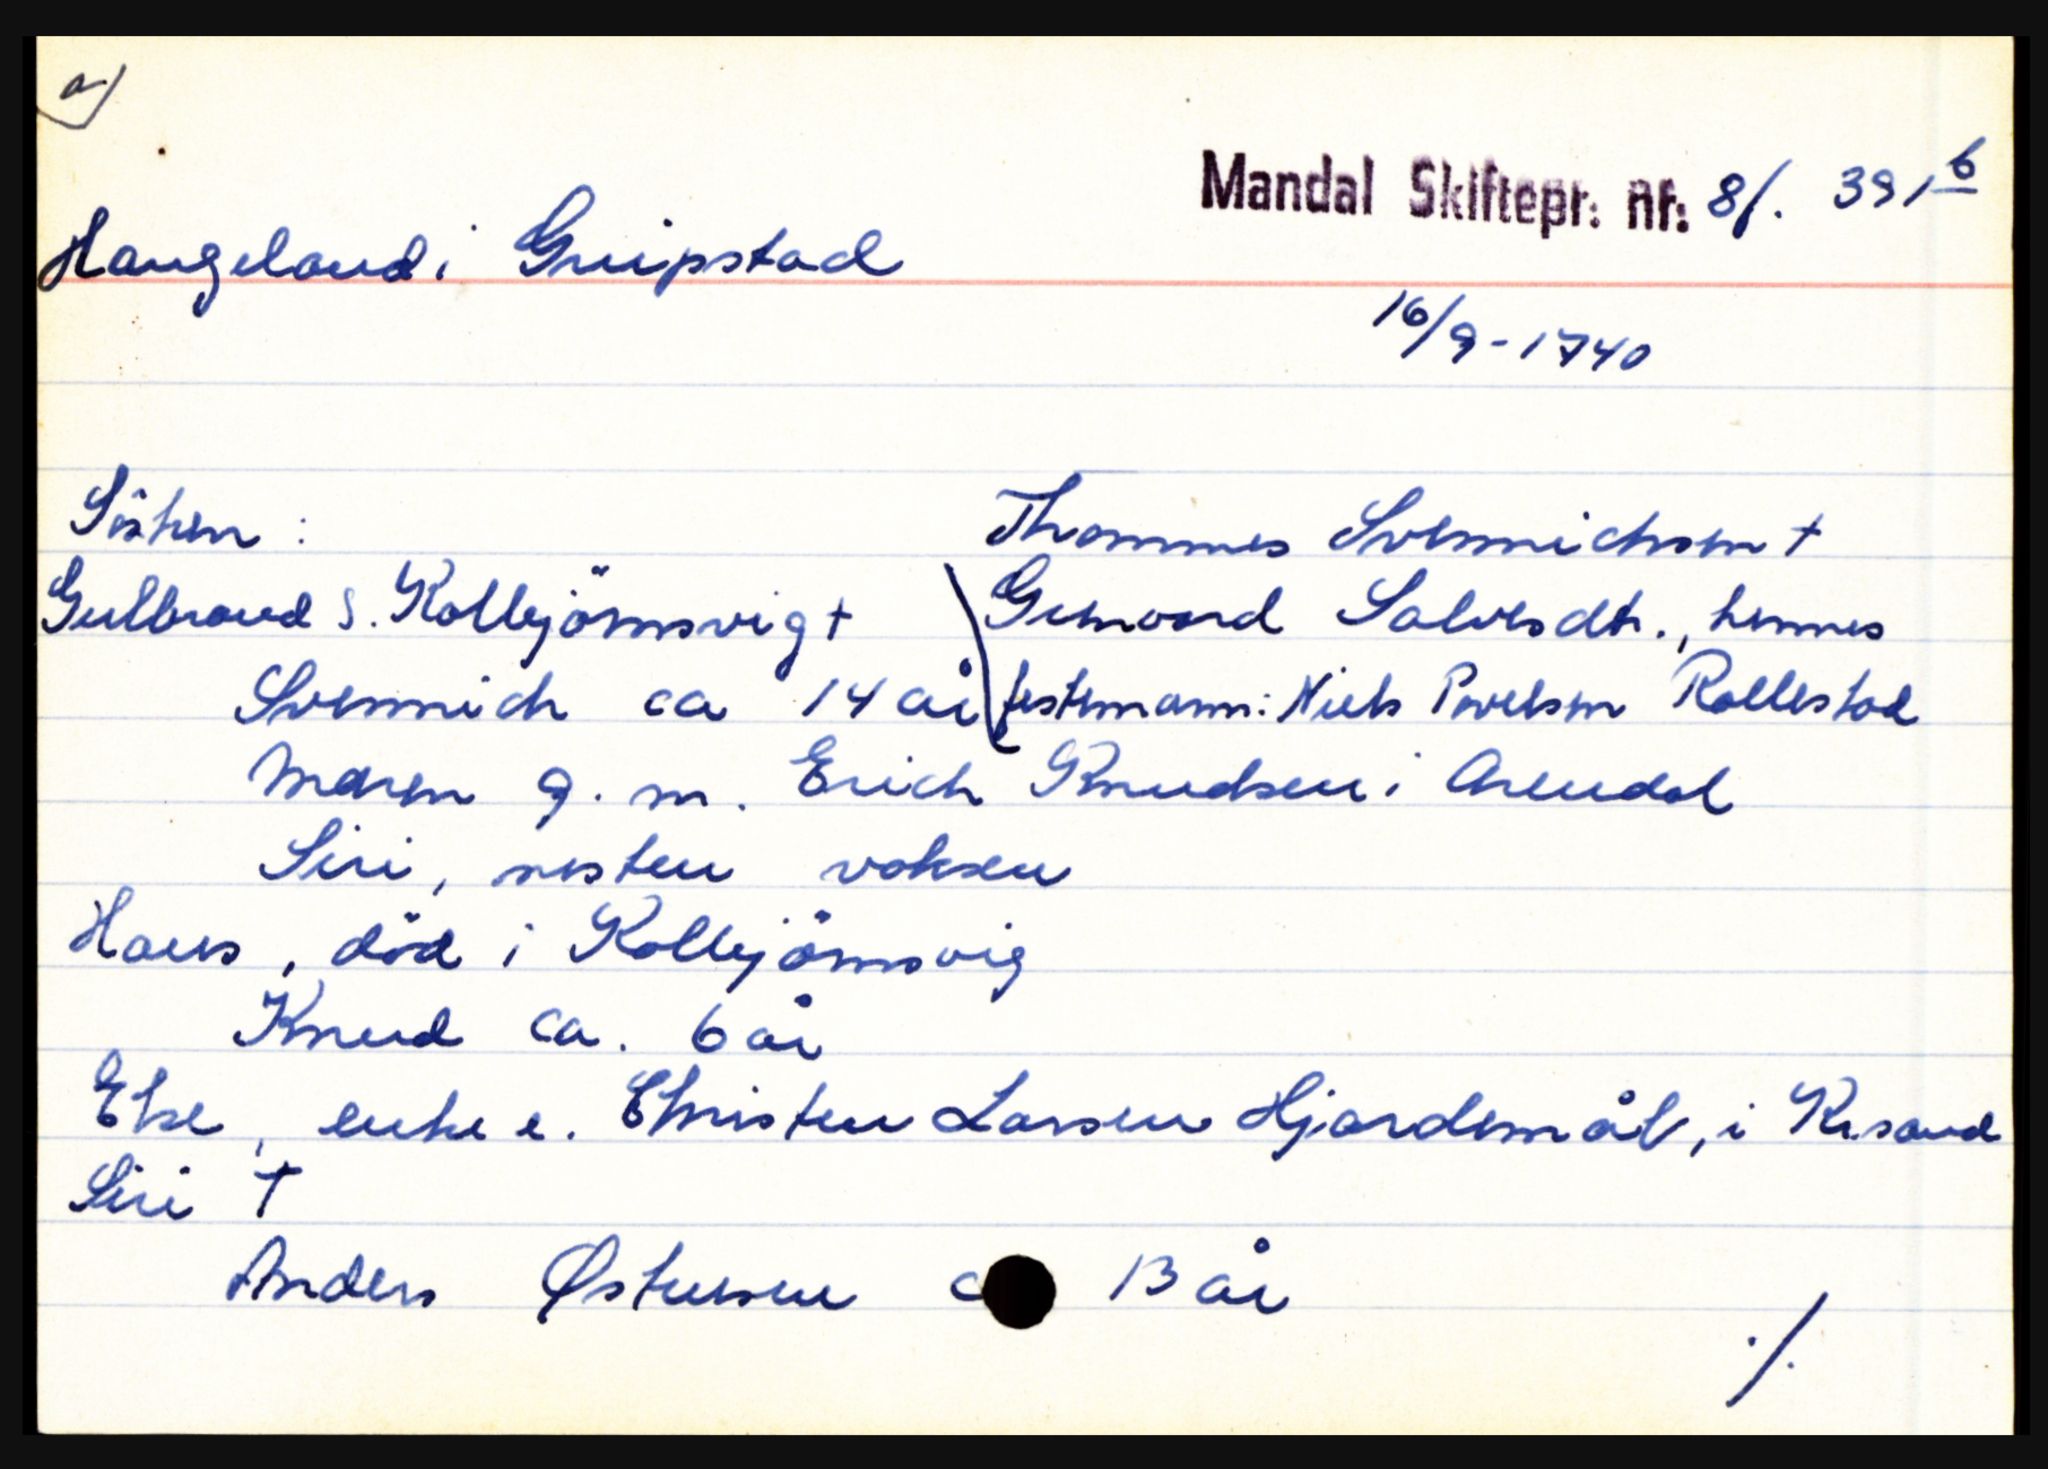 a)
Mandal Skiftepr. nr. 8/. 391 b
Haugeland i Greipstad
16/9-1740
Thommes Svennichsen †
Gunvord Salvesdtr., hennes
festemann: Niels Povelsen Rollestad
Sösken:
Gulbrand S. Kolbjörnsvig †
Svennich ca 14 år
Maren g. m. Erich Knudsen i Arendal
Siri, nesten voksen
Hans, död i Kolbjörnsvig
Knud ca. 6 år
Else, enke e. Christen Larsen Hjardemål, i Kr.sand
Siri †
Anders Østensen c 13 år
./.